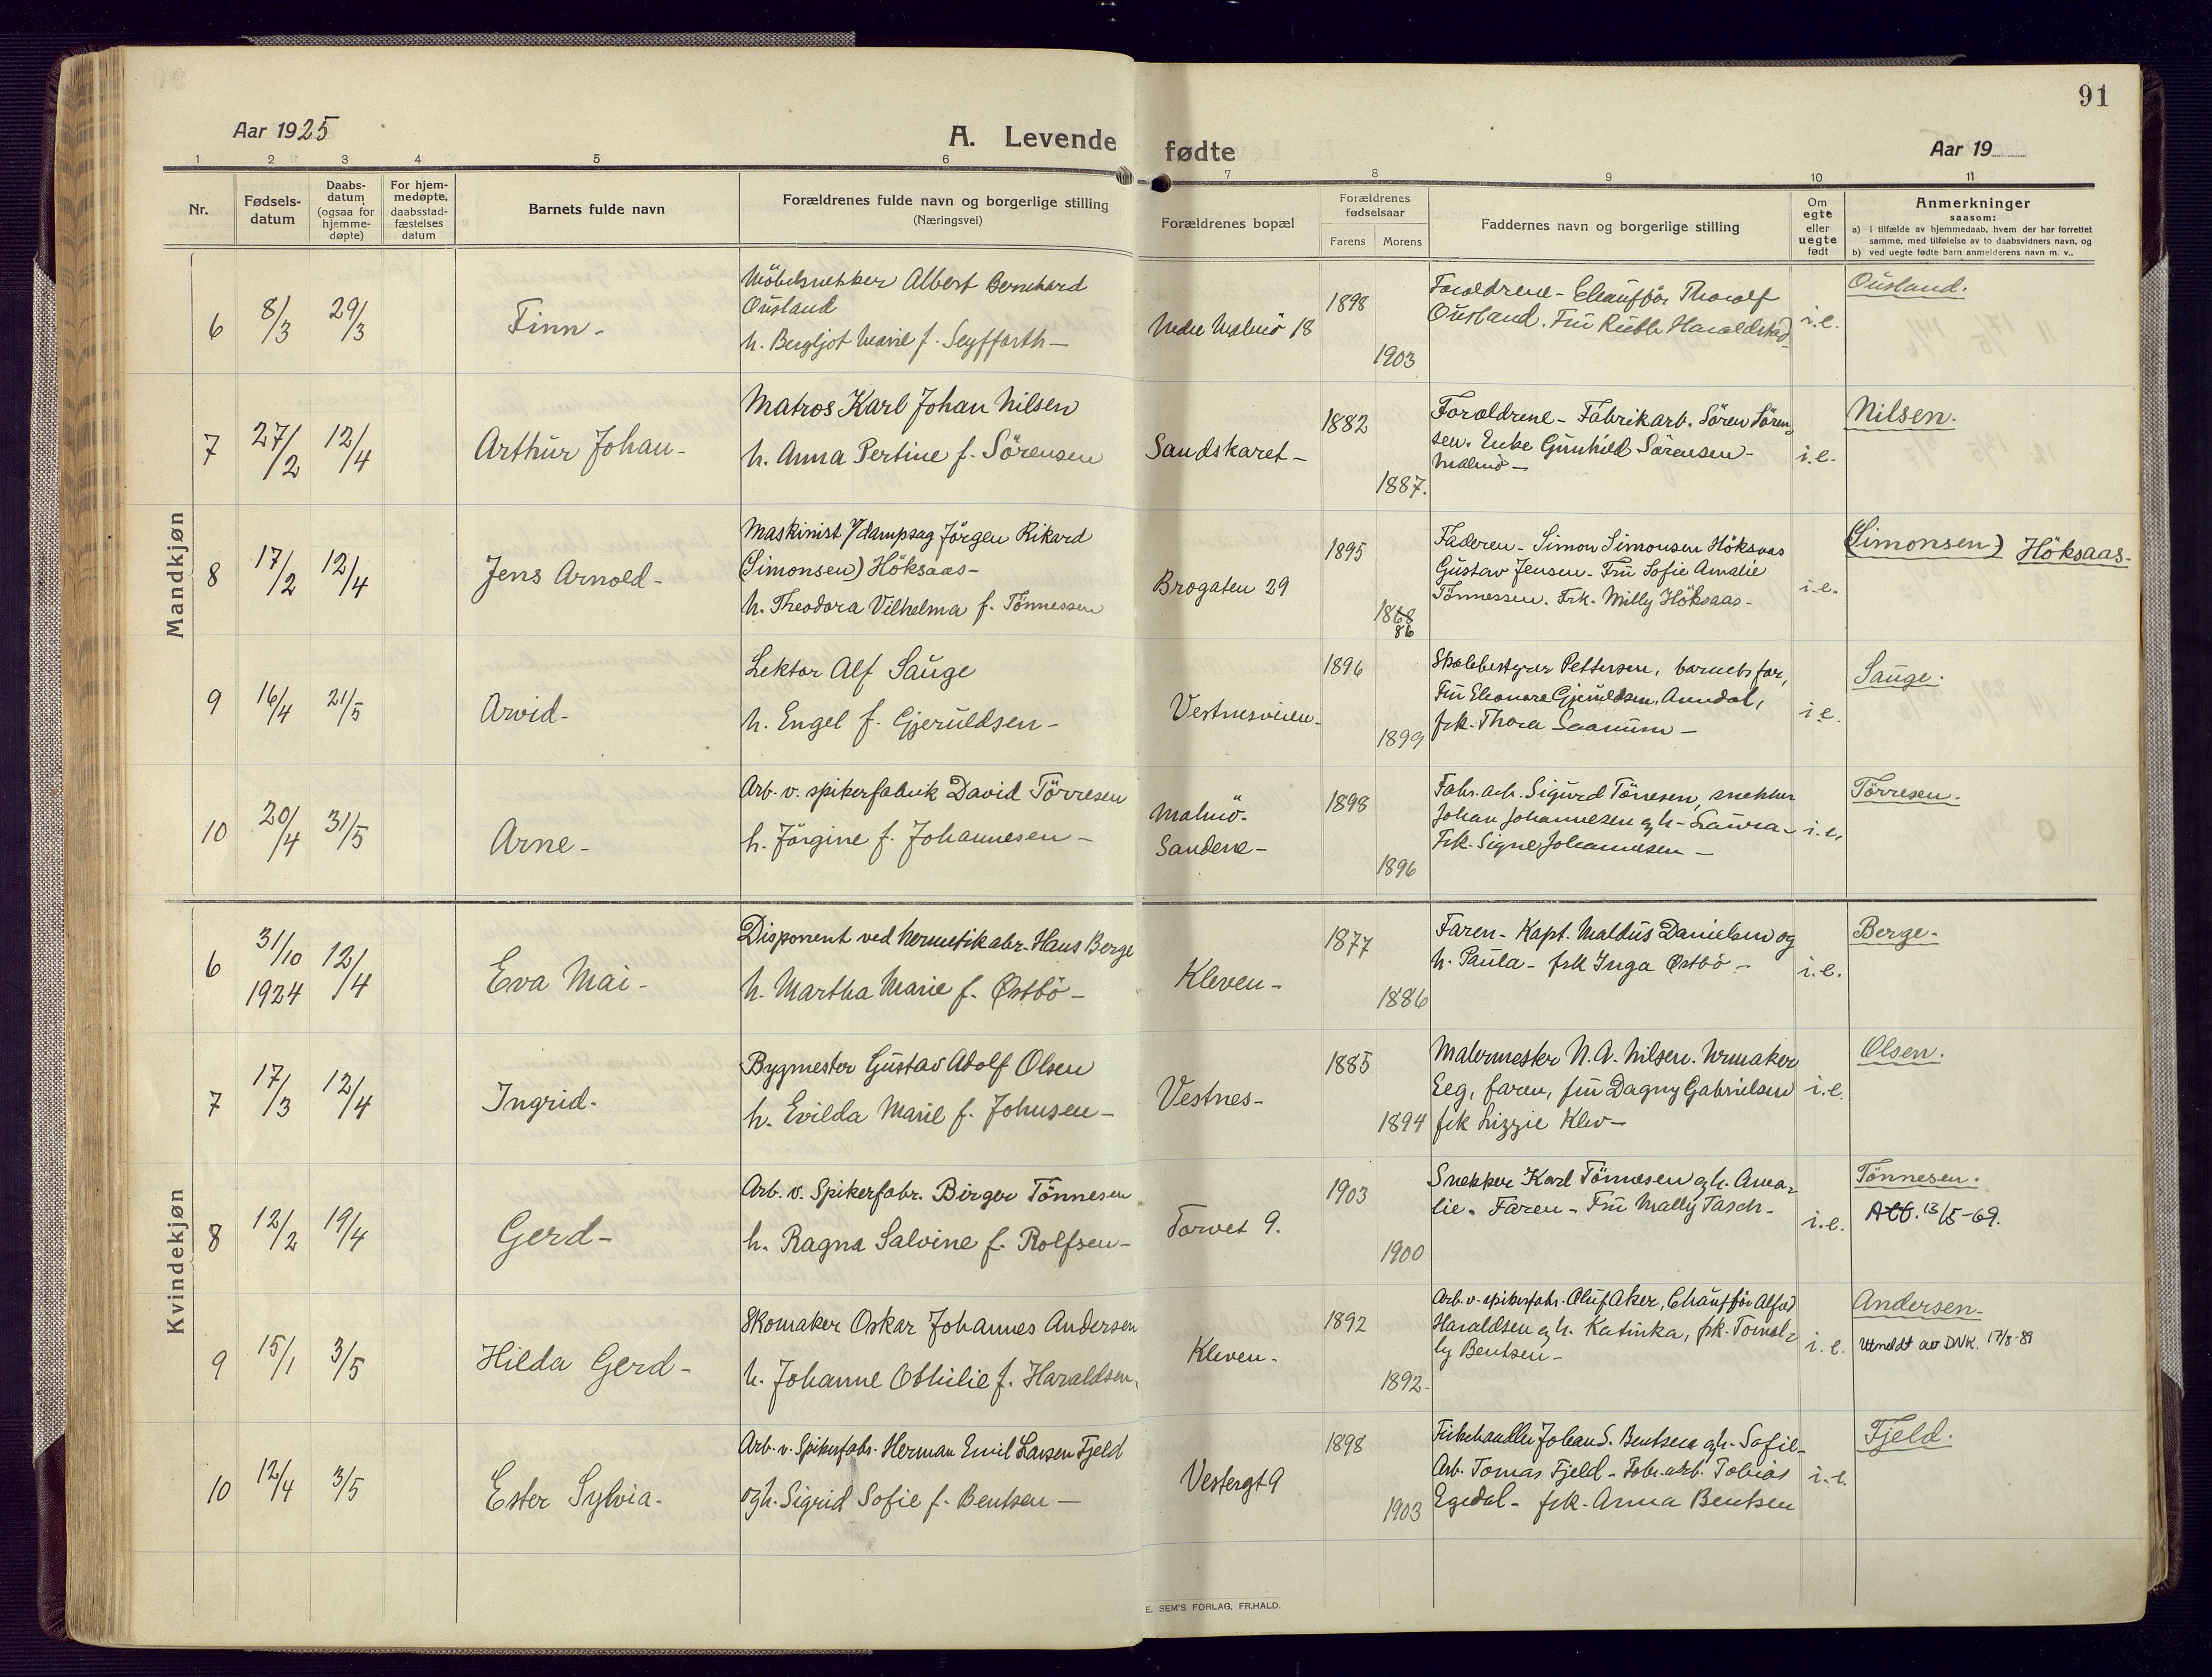 91
Aar 1925
A. Levende
fødte
Aar 19
1 2 3 4 5 6 7 8 9 10 11
Nr.
Fødsels-
datum
Daabs-
datum
(ogsaa for
hjemme-
døpte)
For hjem-
medøpte,
daabsstad-
fæstelses
datum
Barnets fulde navn
Forældrenes fulde navn og borgerlige stilling
(Næringsvei)
Forældrenes bopæl
Forældrenes
fødselsaar
Farens Morens
Faddernes navn og borgerlige stilling
Om
egte
eller
uegte
født
Anmerkninger
saasom:
a) i tilfælde av hjemmedaab, hvem der har forrettet
samme, med tilføielse av to daabsvidners navn, og
b) ved uegte fødte barn anmelderens navn m. v..
Mandkjøn
6
8/3
29/3
Finn-
Möbelsnekker Albert Bernhard
Ousland
h. Bergljot Marie f. Seyffarth-
Malmö 18
1898
1903
Foreldrene- Chaufför Thoralf
Ousland. Fru Ruth Haraldstad-
i.e.
Ousland.
7
27/2
12/4
Arthur Johan-
Matros Karl Johan Nilsen
h. Anna Pertine f. Sörensen
Sandskaret-
1882
1887.
Foreldrene- Fabrikarb. Sören Sören-
sen. Enke Gunhild Sörensen-
Malmö-
i.e.
Nilsen.
8
17/2
12/4
Jens Arnold-
Maskinist v/dampsag Jörgen Rikard
(Simonsen) Höksaas-
h. Theodora Vilhelma f. Tönnessen
Brogaten 29
1895
1868
86
Faderen- Simon Simonsen Höksaas
Gustav Jensen- Fru Sofie Amalie
Tönnessen. Frk. Milly Höksaas-
i.e.
(Simonsen) Höksaas-
9
16/4
21/5
Arvid-
Lektor Alf Sauge
h. Engel f. Gjeruldsen-
Vestnesveien-
1896
1899
Skolebestyrer Pettersen, barnets far,
Fru Eleonore Gjeruldsen, Arendal,
frk. Thora Saanum-
i.e.
Sauge.
10
20/4
31/5
Arne-
Arb. v. spikerfabrik David Törresen
h. Jörgine f. Johannesen-
Malmö-
Sandene-
1898
1896
Fabr. arb. Sigurd Törresen, snekker
Johan Johannesen og h- Laura-
Frk. Signe Johannesen-
i.e.
Törresen.
Kvindekjøn
6
31/10
1924
12/4
Eva Mai-
Disponent ved hermetikabr. Hans Berge
h. Martha Marie f. Østbö-
Kleven-
1877
1886
Faren- Kapt. Maldus Danielsen og
h. Paula- frk Inga Østbö-
i.e.
Berge-
7
17/3
12/4
Ingrid-
Bygmester Gustav Adolf Olsen
h. Evilda Marie f. Johnsen-
Vestnes-
1885
1894
Malermester N. A. Nilsen. Urmaker
Eeg, faren, fru Dagny Gabrielsen
frk Lizzie Klev-
i.e.
Olsen.
8
12/2
19/4
Gerd-
Arb. v. Spikerfabr. Birger Tönnesen
h. Ragna Salvine f. Rolfsen-
Torvet 9.
1903
1900
Snekker Karl Tönnesen og h. Ama-
lie- Faren- Fru Mally Tasch-
i.e.
Tönnesen.
Att. 13/5-69.
9
15/1
3/5
Hilda Gerd-
Skomaker Oskar Johannes Andersen
h. Johanne Othilie f. Haraldsen.
Kleven-
1892
1892-
Arb. v. spikerfabr. Oluf Aker, Chaufför Alfred
Haraldsen og h. Katinka, frk.
Bentsen-
i.e.
Andersen-
Utmeldt av DNK. 17/8-89
10
12/4
3/5
Ester Sylvia-
Arb. v. Spikerfabr. Herman Emil Larsen Fjeld
og h. Sigrid Sofie f. Bentsen-
Vestergt 9
1898
1903
Fiskehandler Johan S. Bentsen og h- Sofie-
Arb. Tomas Fjeld- Fabr. arb. Tobias
Egedal- frk- Anna Bentsen
i.e.
Fjeld.
E. SEM'S FORLAG, FR.HALD.